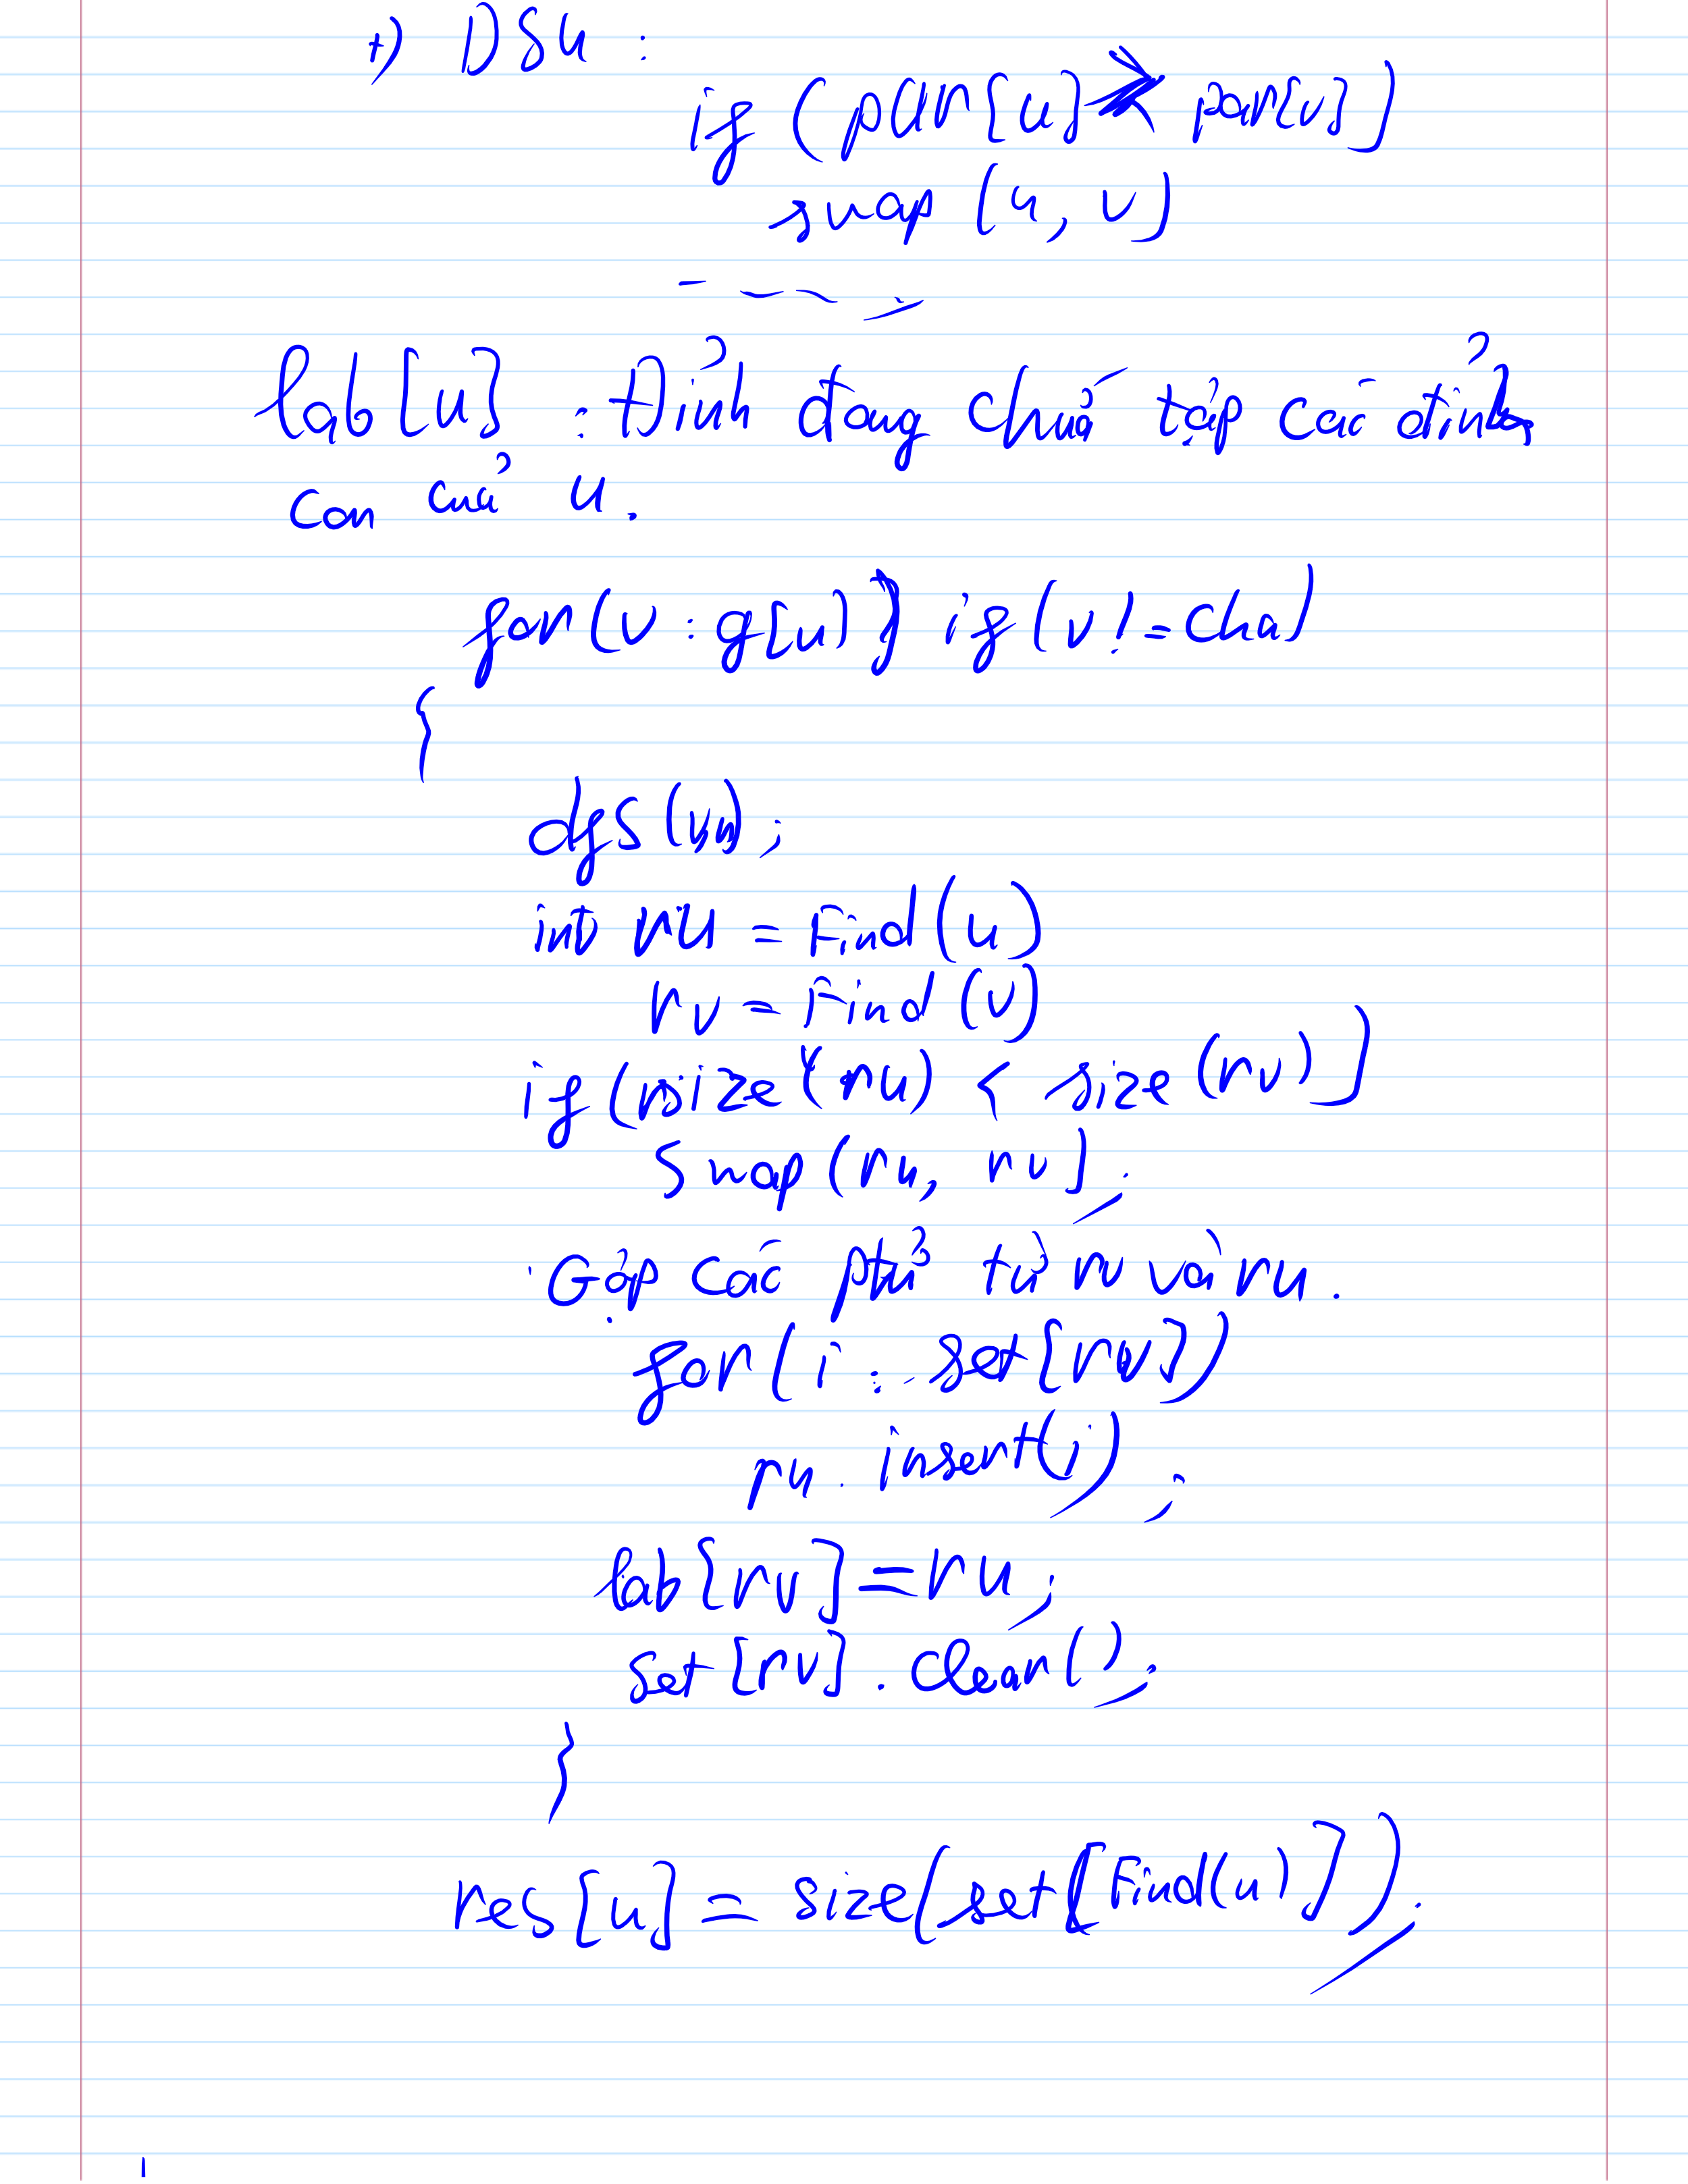 +) DSU :
if (par[u] > par[v])
swap (u, v)
lab[u] : Đỉnh đang chứa tập các đỉnh
con của u.
for(v : g[u]) if(v != cha)
{
dfs(v,u);
int ru = Find(u)
rv = Find(v)
if(size(ru) < size(rv))
swap(ru, rv);
Gộp các ptử từ rv vào ru.
for(i : set[rv])
ru. insert(i) ;
lab[rv] = ru;
set[rv]. clear();
}
res[u] = size(set[Find(u)]);